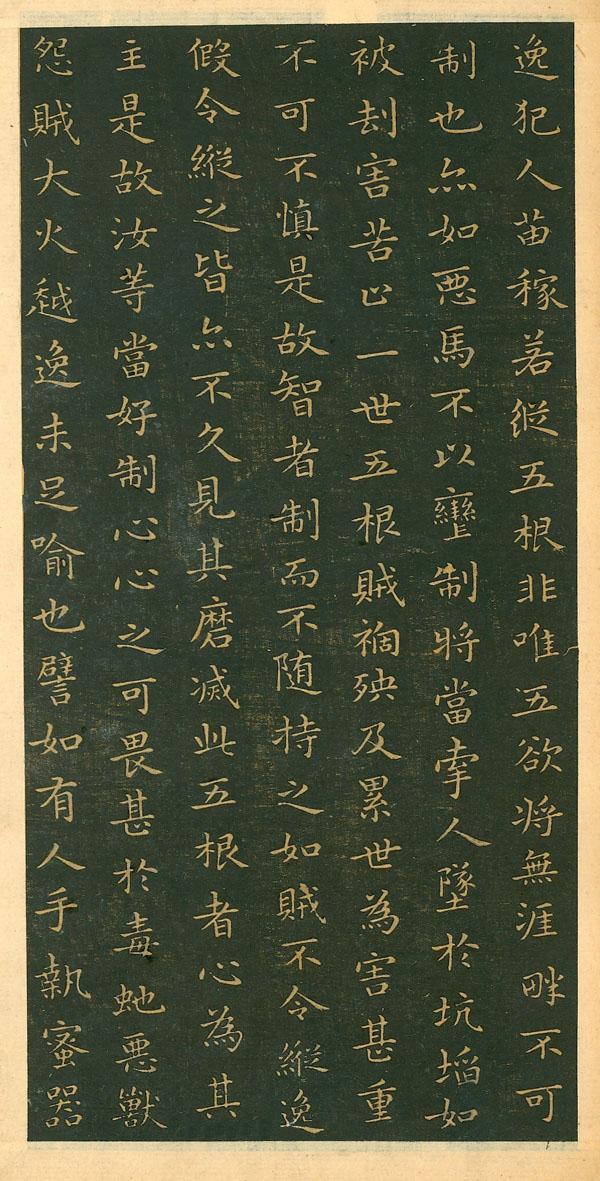 逸犯人苗稼若縱五根非唯五欲將無涯畔不可
制也亦如悪馬不以轡制將當牽人墜於坑埳如
被刦害苦止一世五根賊禍殃及累世為害甚重
不可不慎是故智者制而不随持之如賊不令縱逸
假令縱之皆亦不久見其磨滅此五根者心為其
主是故汝等當好制心心之可畏甚於毒虵悪獸
怨賊大火越逸未足喻也譬如有人手執蜜器